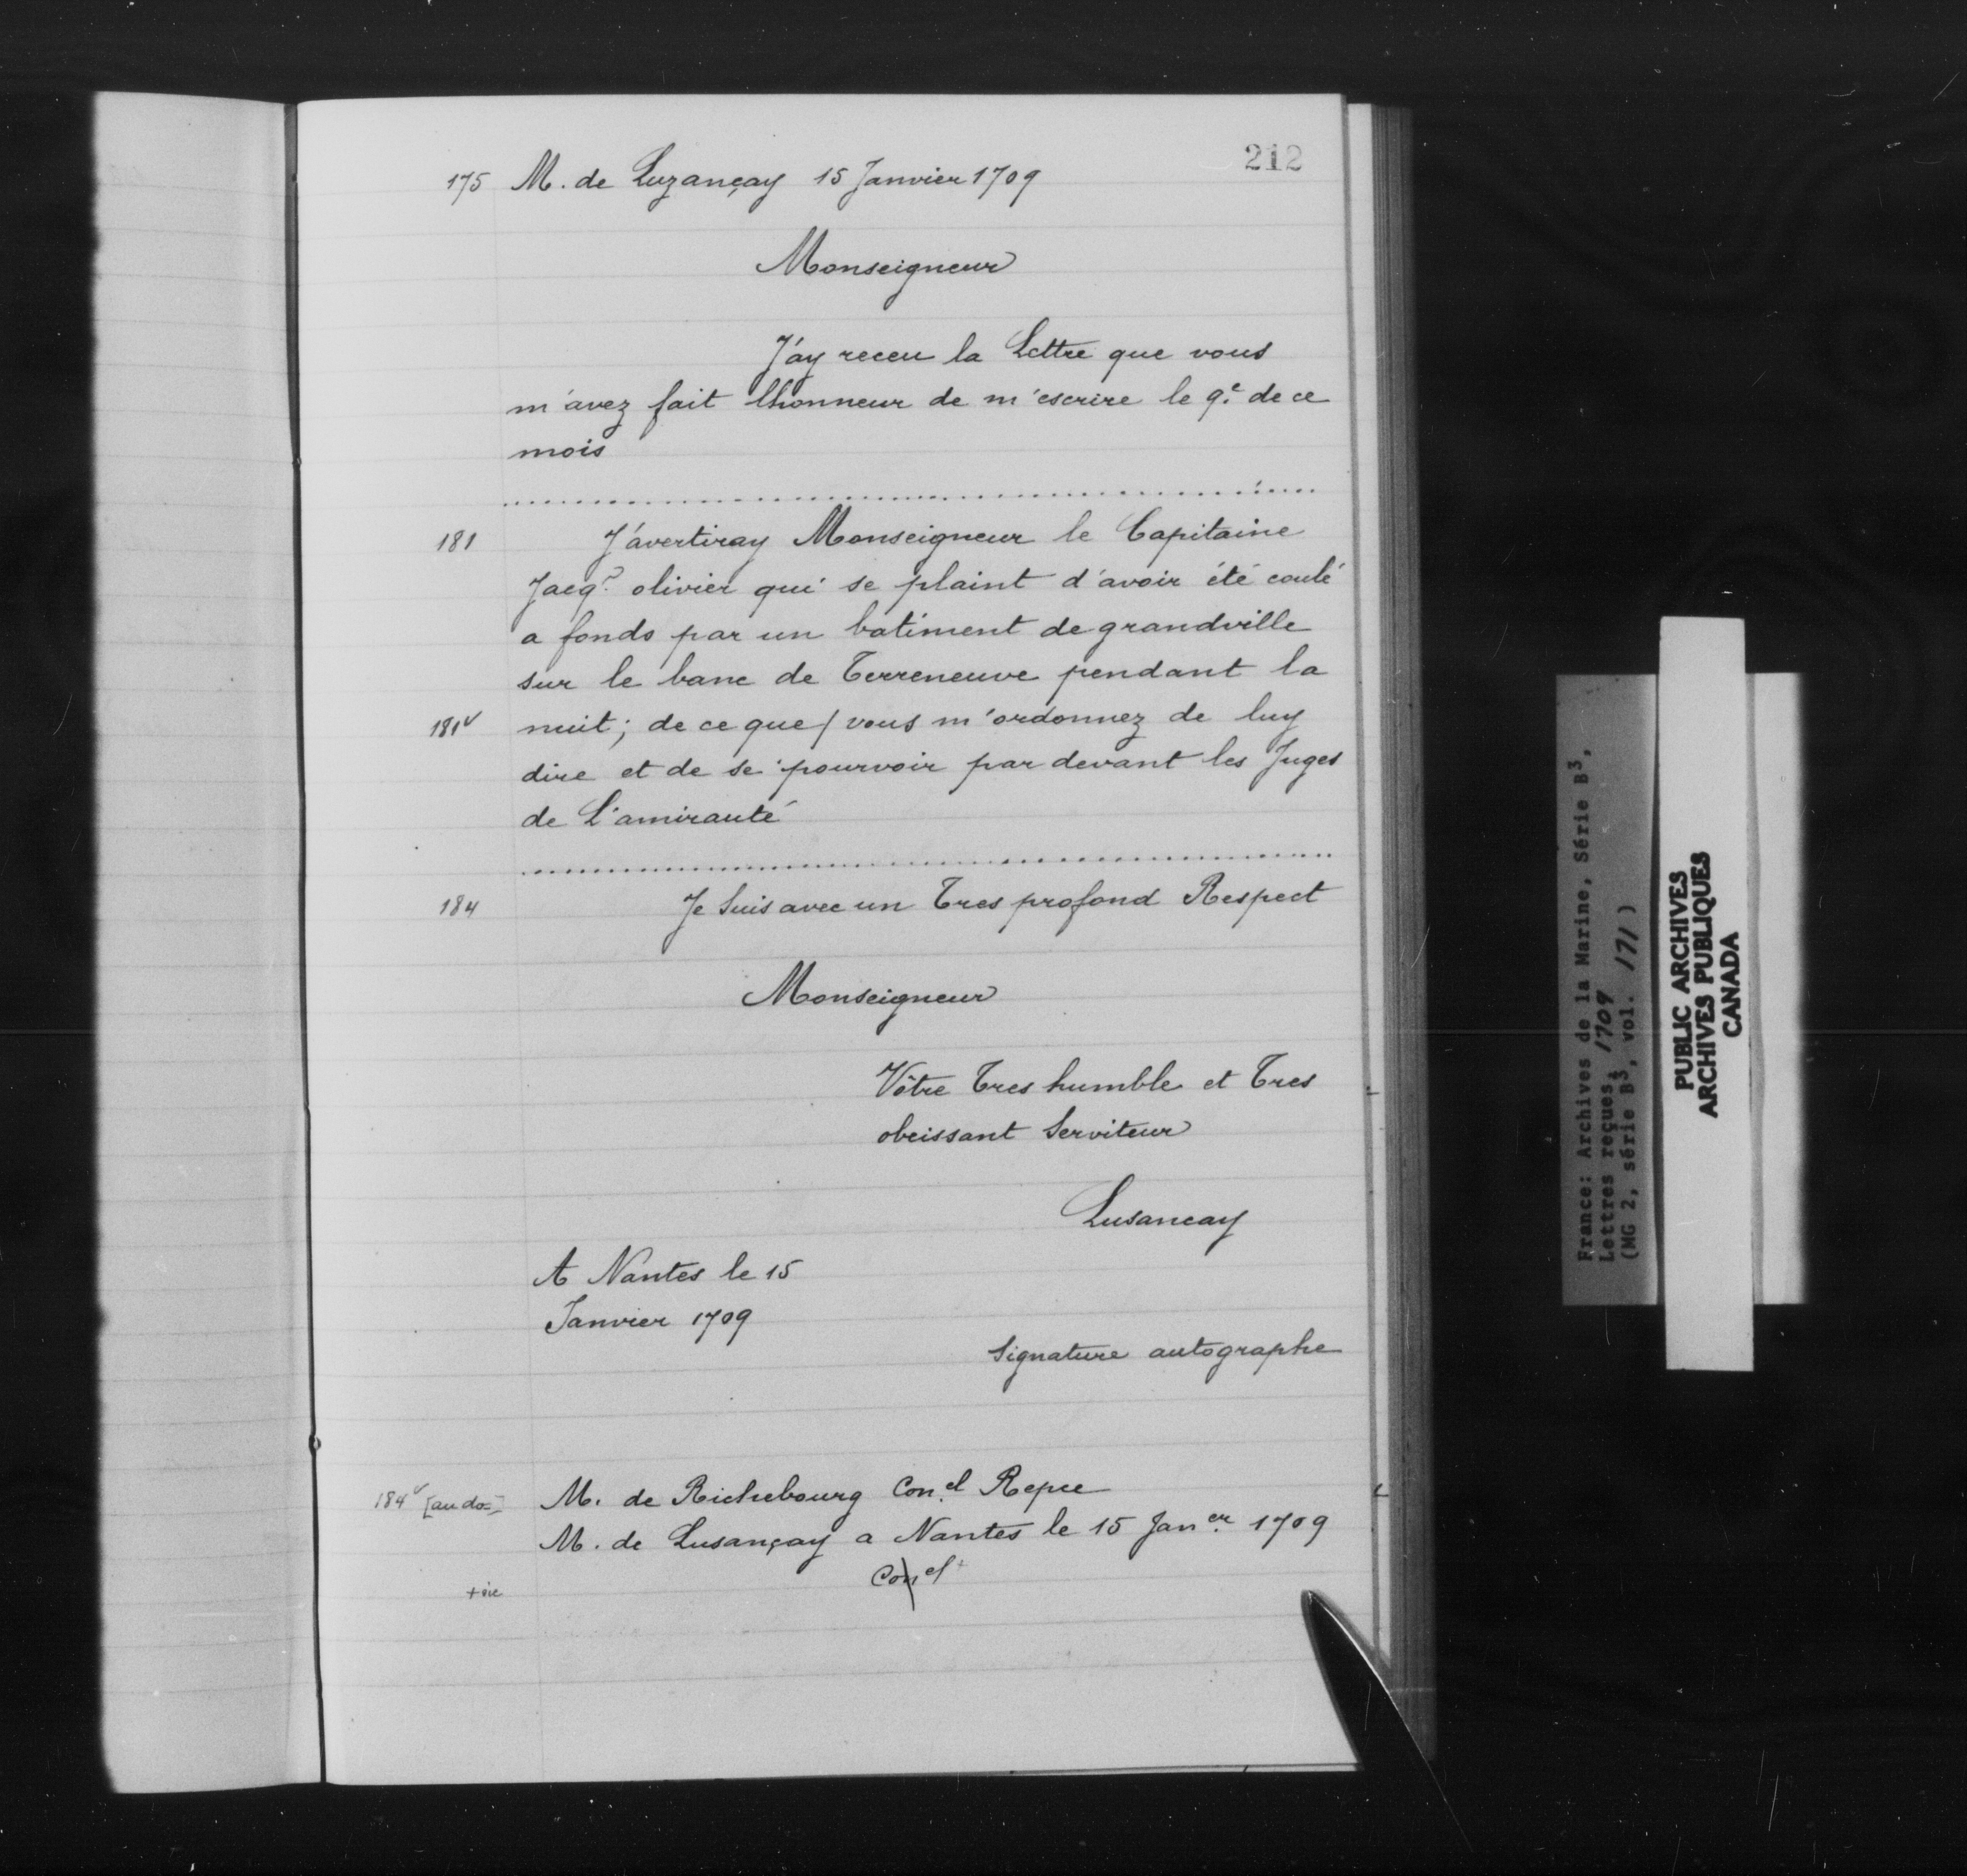 212
175 M. de Luzançay 15 Janvier 1709
Monseigneur
J'ay receu la Lettre que vous
m'avez fait lhonneur de m'escrire le 9.e de ce
mois
181 J'avertiray Monseigneur le Capitaine
Jacq.s olivier qui se plaint d'avoir été coulé
a fonds par un batiment de grandville
sur le banc de Terreneuve pendant la
181v nuit; de ce que / vous m'ordonnez de luy
dire et de se pourvoir par devant les Juges
de L'amirauté
184 Je Suis avec un Tres profond Respect
Monseigneur
Vôtre Tres humble et Tres
obeissant Serviteur
Lusancay
A Nantes le 15
Janvier 1709
Signature autographe
184v [au dos] M. de Richebourg Con.el Repce
M. de Lusançay a Nantes le 15 Jan.er 1709
Con el +
+ sic
France: Archives de la Marine, Série B3,
Lettres reçues, 1709
(MG 2, série B3, vol. 171)
PUBLIC ARCHIVES
ARCHIVES PUBLIQUES
CANADA